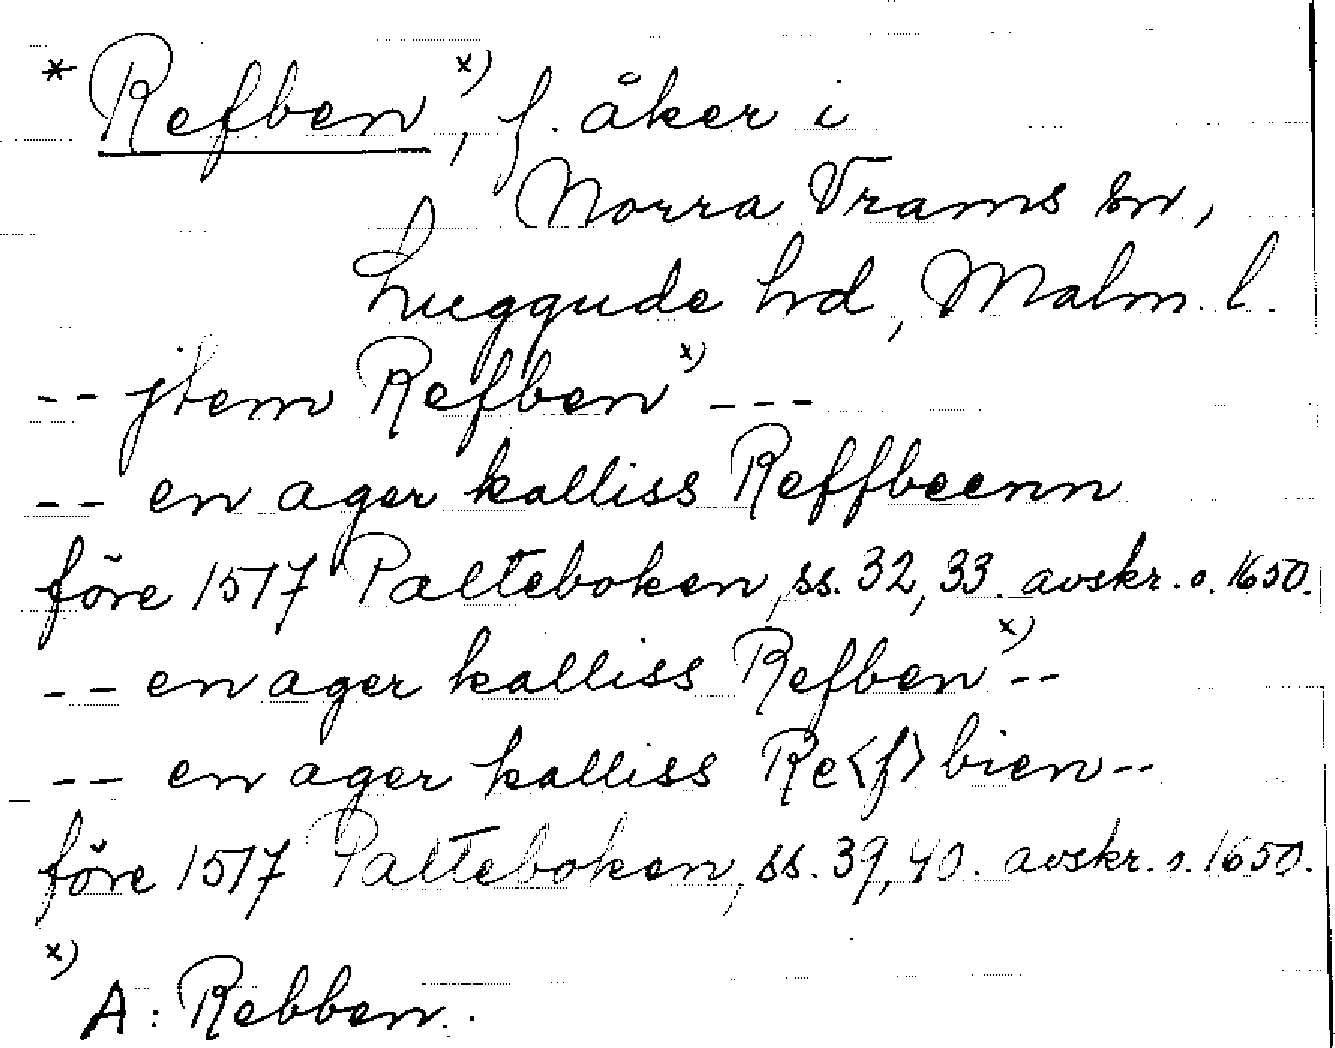 * Refben x), f. åker i
Norra Vrams sn,
Luggude hd, Malm. l.
-- jtem Refben x) ---
-- en ager kalliss Reffbeenn
före 1517 Palteboken, ss. 32, 33. avskr. o. 1650.
-- en ager kalliss Refben x) --
-- en ager kalliss Re<f>bien --
före 1517 Palteboken, ss. 39, 40. avskr. o. 1650.
x)
A: Rebben.